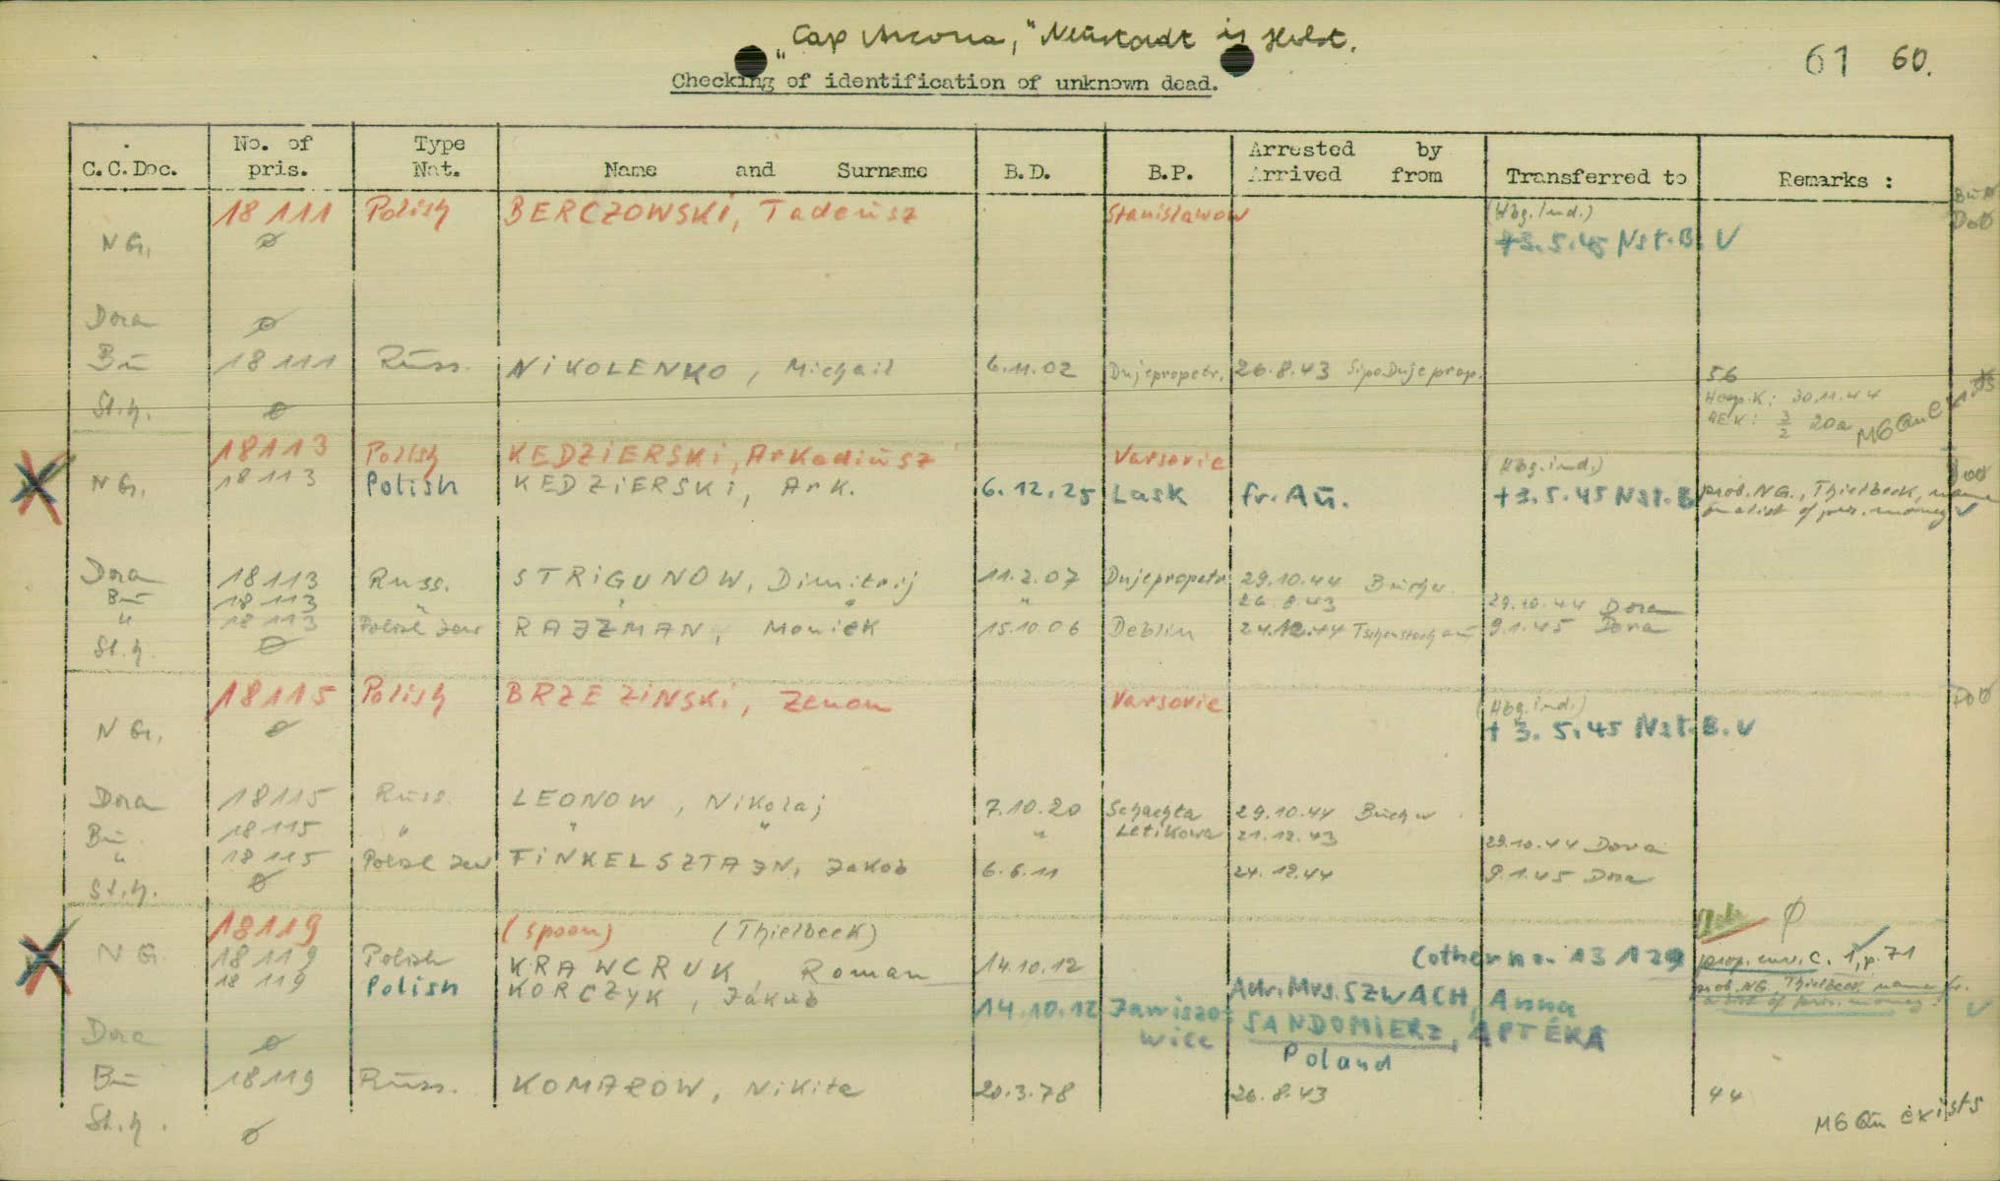 "Cap Arcona," Neustadt in Holst.
61 60.
Checking of identification of unknown dead.
C.C.Doc. No. of pris. Type Nat. Name and Surname B.D. B.P. Arrested by Arrived from Transferred to Remarks :
18111 Polish BERCZOWSKI, Tadeusz Stanislawow (Hbg. ind.)
NG. ø +3.5.45 Nst.B. V
Dora ø
Bu 18111 Russ. NIKOLENKO, Michail 6.11.02 Dnjepropetr. 26.8.43 Sipo Dnjeprop. 56
St.h. ø Hosp.K: 30.11.44
AEK: 3/2 20a MG Qu
18113 Polish KEDZIERSKI, Arkadiusz Varsovie (Hbg. ind.)
NG. 18113 KEDZIERSKI, Ark.
Polish 6.12.25 Lask fr. Au. +3.5.45 Nst.B prob. NG., Thielbeck, name
on a list of pris. money V
Dora 18113 Russ. STRIGUNOW, Dimitrij 11.2.07 Dnjepropetr. 29.10.44 Buchw.
Bu 18113 " " " " 26.8.43 29.10.44 Dora
" 18113 Polish Jew RAJZMAN, Moniek 15.10.06 Deblin 24.12.44 Tschenstochau 9.1.45 Dora
St.h. ø
18115 Polish BRZEZINSKI, Zenon Varsovie (Hbg. ind.)
NG. ø + 3.5.45 Nst.B. V
Dora 18115 Russ. LEONOW, Nikolaj 7.10.20 Schachta 29.10.44 Buchw
Bu. 18115 " " " " Letikowa 21.12.43 29.10.44 Dora
" 18115 Polish Jew FINKELSZTAJN, Jakob 6.6.11 24.12.44 9.1.45 Dora
St.h. ø
18119 (spoon) (Thielbeck) ø
NG 18119 Polish KRAWCRUK Roman 14.10.12 (other no. 13129 prop. env. C. 1, p. 71
18119 Polish KORCZYK, Jakub prob. NG. Thielbeck, name fr.
a list of pris. money V
14.10.12 Jawiszo- Adr. Mrs. SZWACH, Anna
wice SANDOMIERZ, APTÉKA
Poland
Dora ø
Bu 18119 Russ. KOMAROW, Nikita 20.3.78 26.8.43 44
St.h. ø MG Qu exists